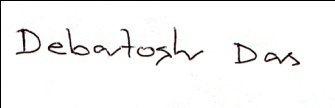 Debatosh Das